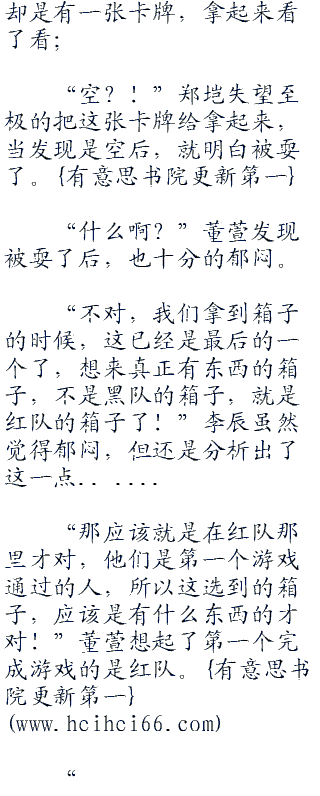 却是有一张卡牌，拿起来看
了看；
“空？！”郑垲失望至
极的把这张卡牌给拿起来，
当发现是空后，就明白被耍
了。{有意思书院更新第一}
“什么啊？”董萱发现
被耍了后，也十分的郁闷。
“不对，我们拿到箱子
的时候，这已经是最后的一
个了，想来真正有东西的箱
子，不是黑队的箱子，就是
红队的箱子了！”李辰虽然
觉得郁闷，但还是分析出了
这一点.......
“那应该就是在红队那
里才对，他们是第一个游戏
通过的人，所以这选到的箱
子，应该是有什么东西的才
对！”董萱想起了第一个完
成游戏的是红队。{有意思书
院更新第一}
(www.hcihci66.com)
“